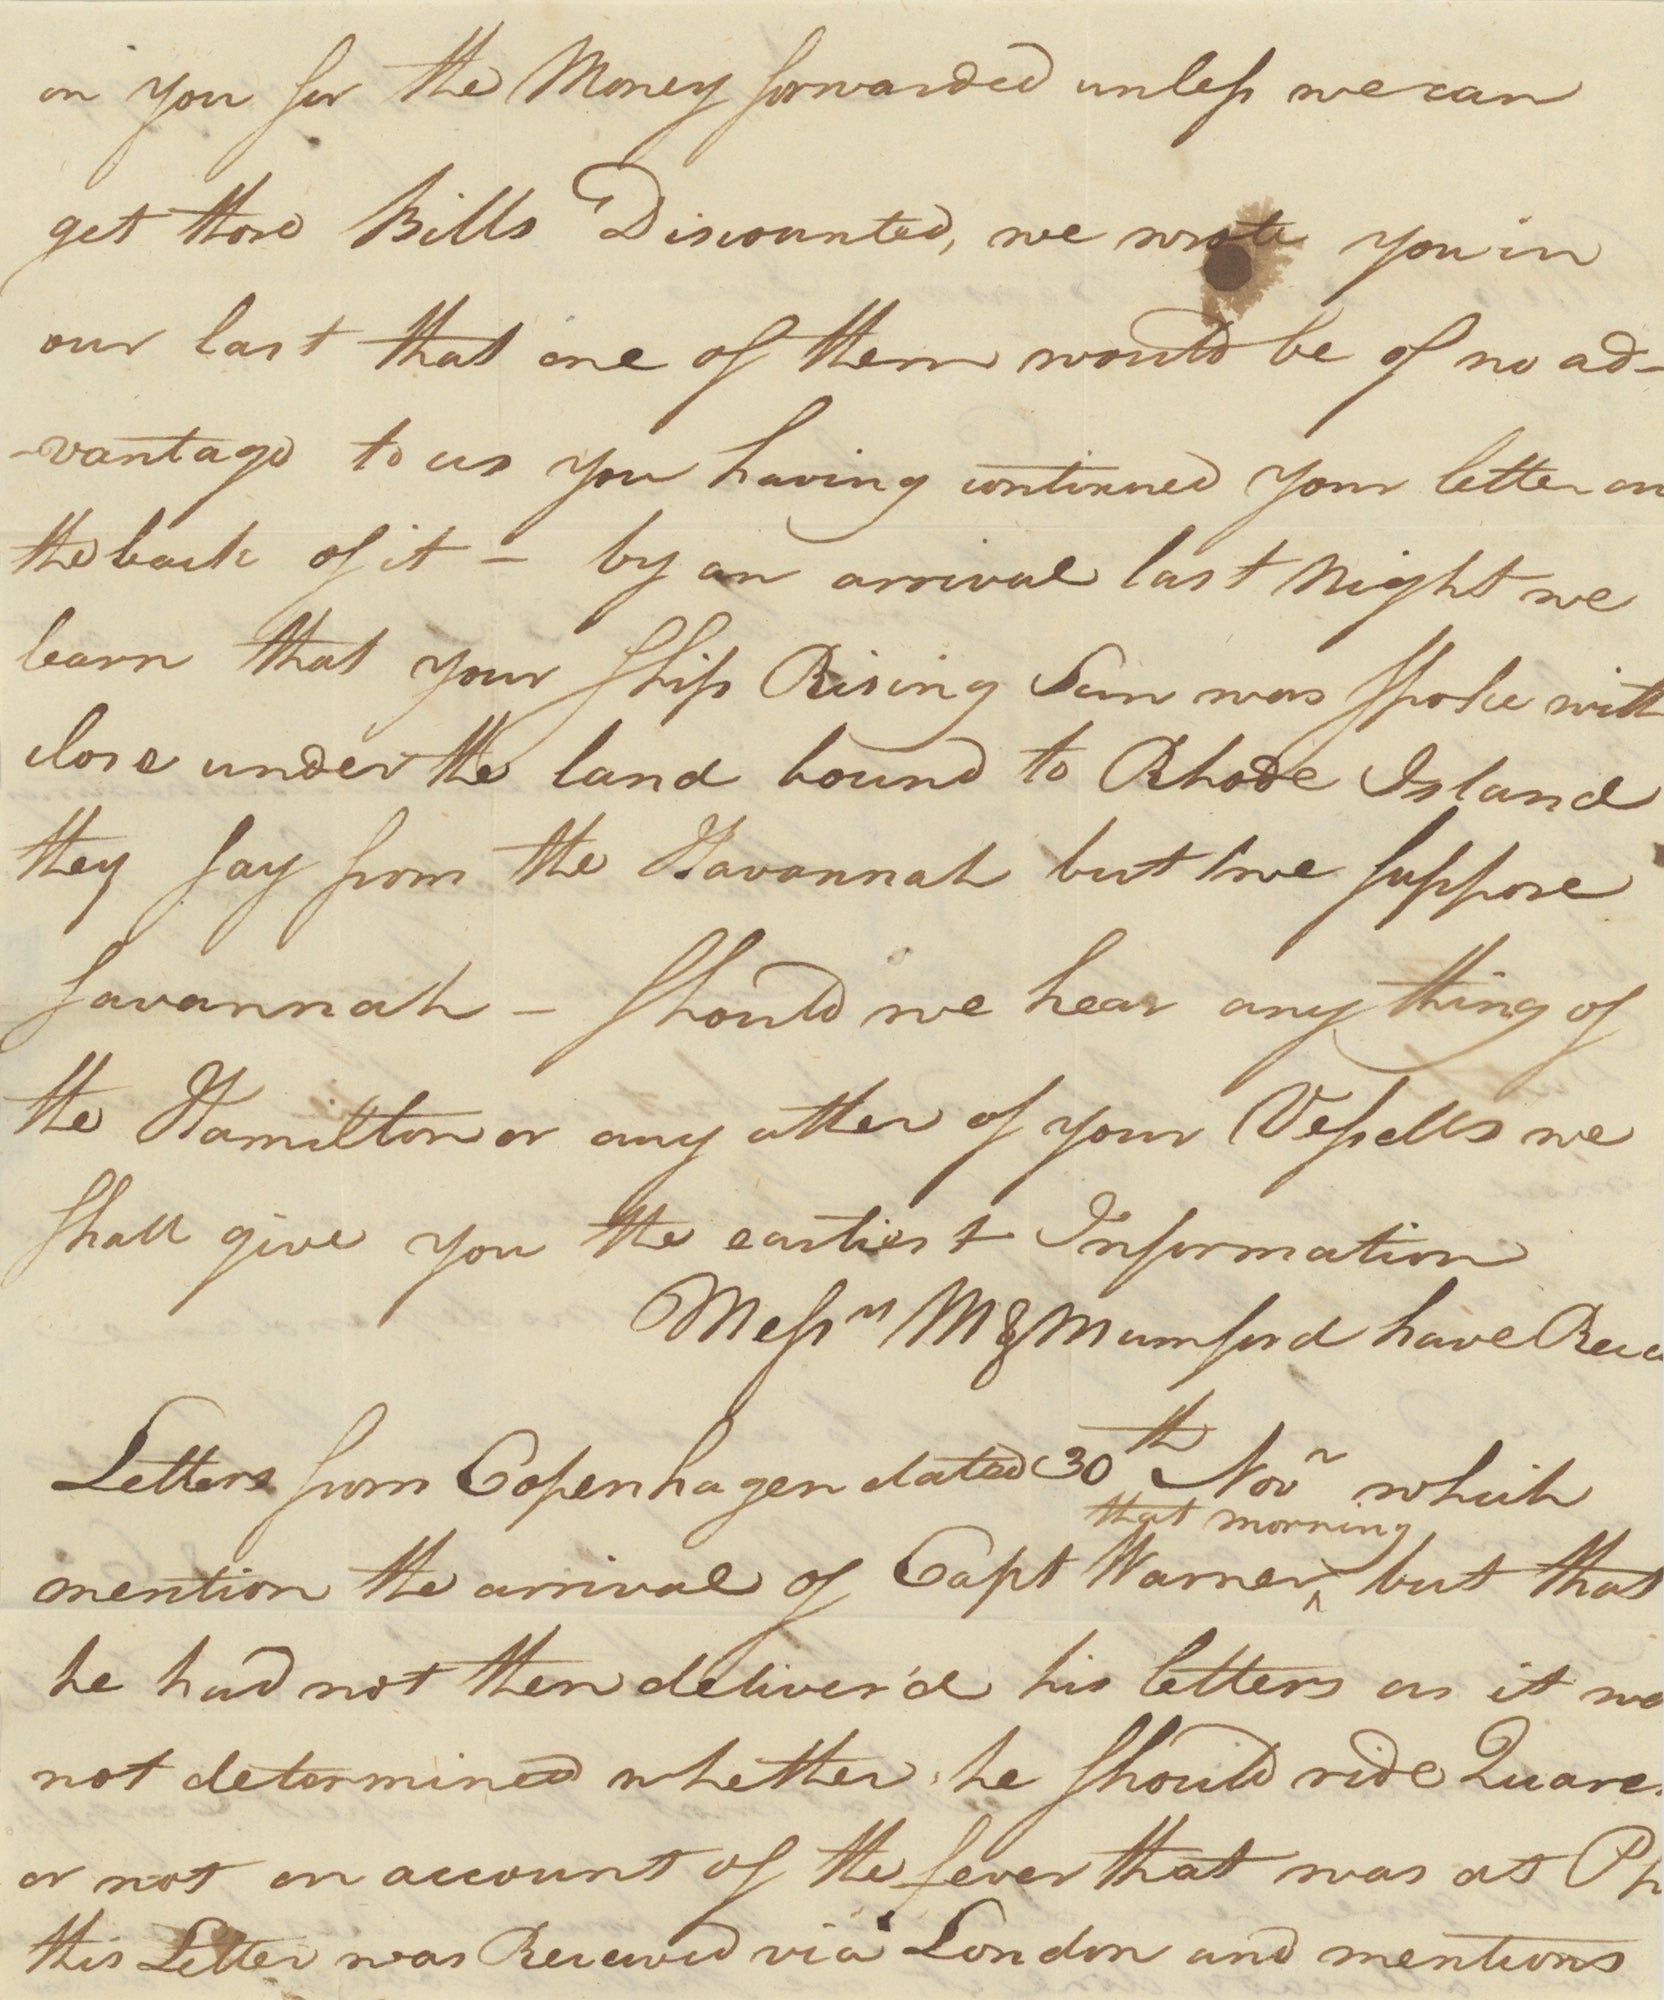 on you for the Money forwarded unless we can
get those Bills Discounted, we wrote you in
our last that one of them would be of no ad-
-vantage to us you having continued your letter on
the back of it - by an arrival last Night we
learn that your Ship Rising Sun was Spoke with
close under the land bound to Rhode Island
they Say from the Havannah but we Suppose
Savannah - Should we hear any thing of
the Hamilton or any other of your Vessells we
Shall give you the earliest Information
Messrs M & Mumford have
Letters from Copenhagen dated 30th Novr which
that morning
mention the arrival of Capt Warner ^ but that
he had not then deliver'd his letters as it
not determined whether he Should ride
or not on account of the fever that was at
this Letter was Received via London and mentions